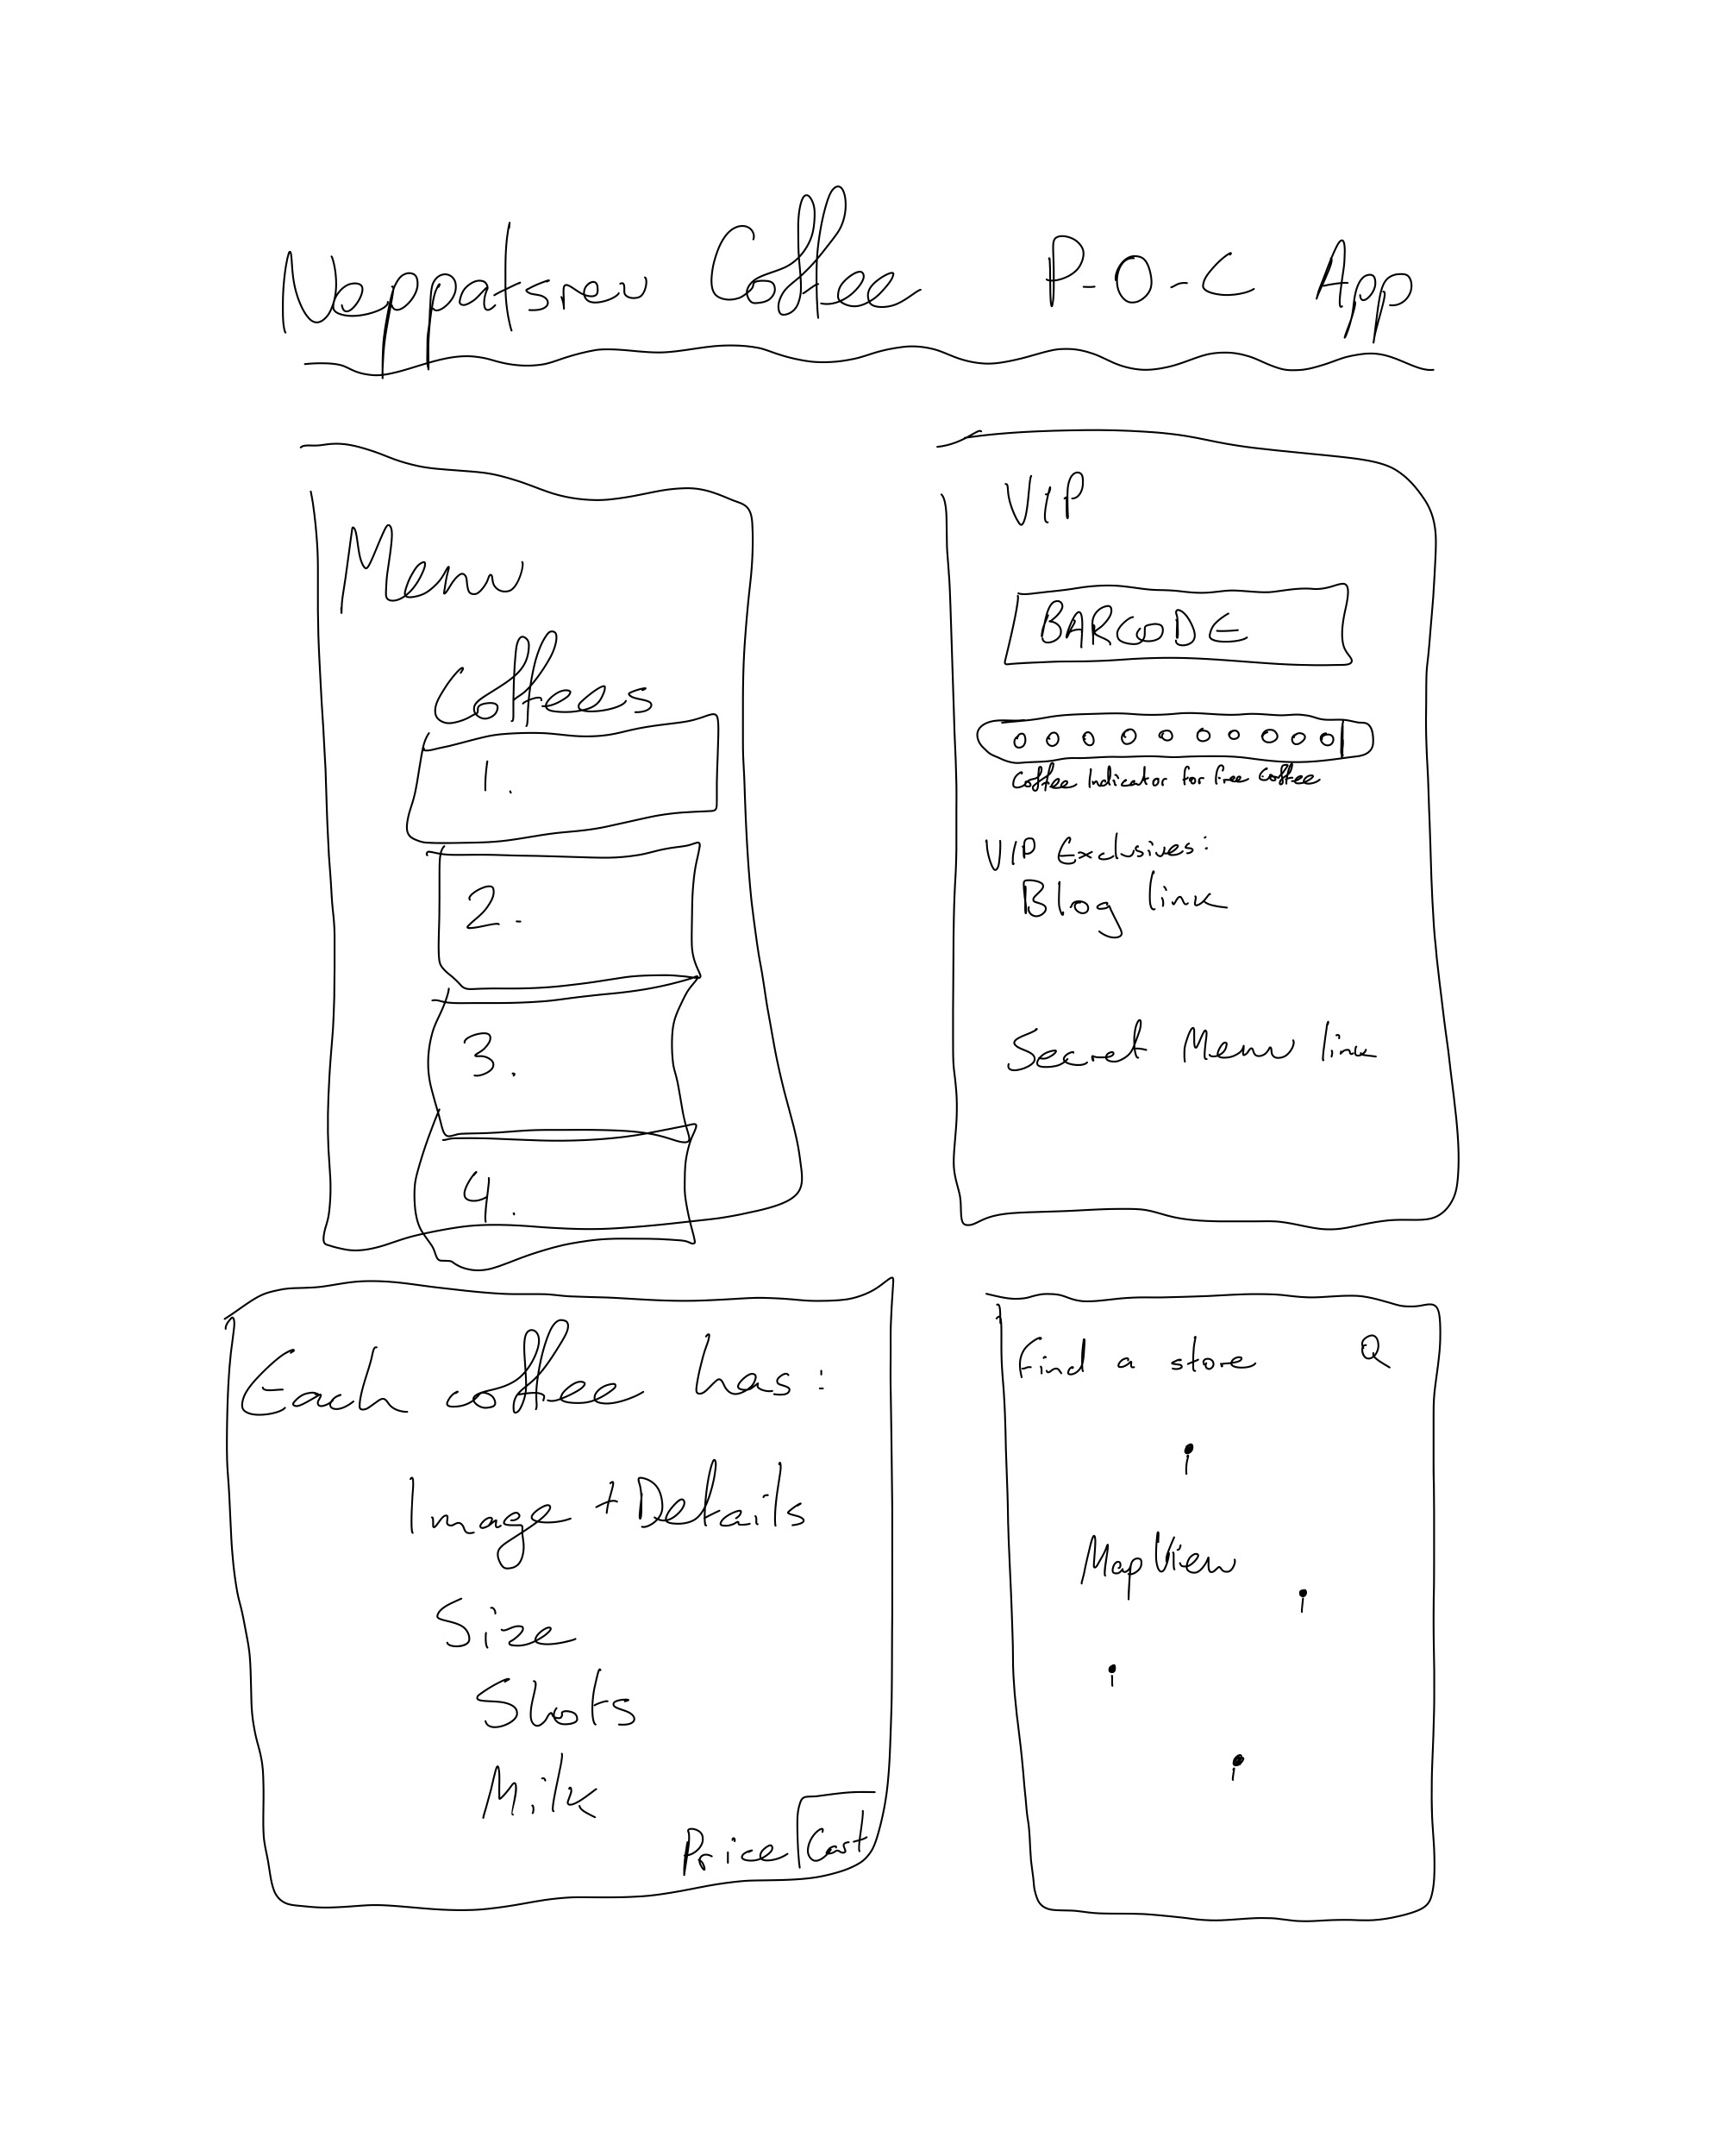 Neppatsrev Coffee P-O-C App
Menu
Coffees
1.
2.
3.
4.
VIP
BARCODE
Coffee Indicator for free coffee
VIP Exclusives:
Blog link
Secret Menu link
Each coffee has:
Image + Details
Size
Shots
Milk
Price Cart
find a store
MapView